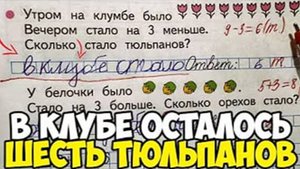 Утром на клумбе было
Вечером стало на 3 меньше. 9-3=6(т)
Сколько стало тюльпанов?
в клубе стало Ответ: 6 т
У белочки было
Стало на 3 больше. Сколько орехов стало?
5+3=8
В КЛУБЕ ОСТАЛОСЬ
ШЕСТЬ ТЮЛЬПАНОВ